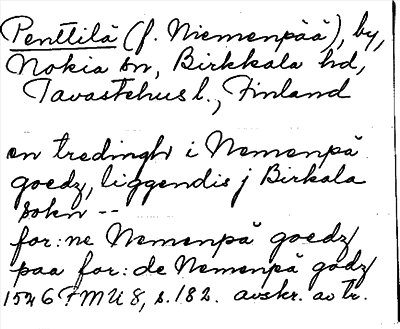 Penttilä (f. Niemenpää), by,
Nokia sn, Birkkala hd,
Tavastehus l., Finland
en tredingh i Nemenpä
goedz, liggendis j Birkala
sokn --
for:ne Nemenpä goedz
paa for:de Nemenpä godz
1546 FMU 8, s. 182. avskr. av tr.